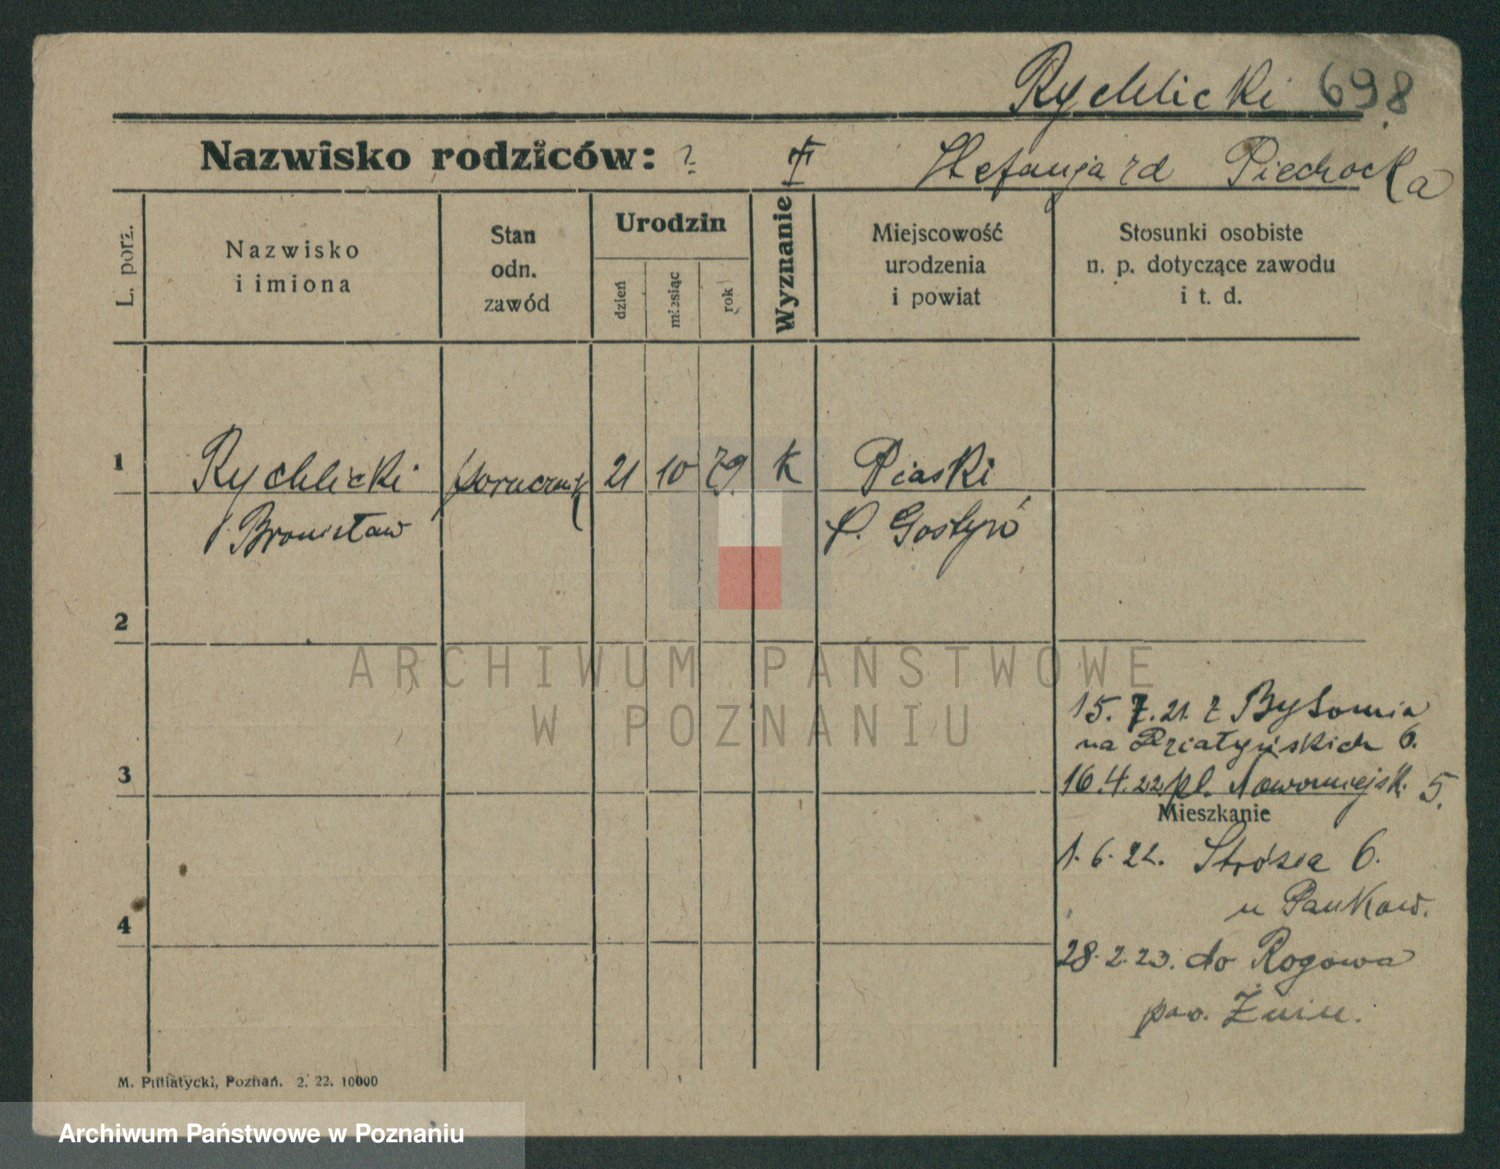 Rychlicki 698
Nazwisko rodziców: ? Stefanja rd Piechocka
L. porz.
Nazwisko
i imiona
Stan
odn.
zawód
Urodzin
dzień
miesiąc
rok
Wyznanie
Miejscowość
urodzenia
i powiat
Stosunki osobiste
n. p. dotyczące zawodu
i t. d.
1 Rychlicki porucznik 21 10 79 K Piaski
Bronisław p. Gostyń
2
ARCHIWUM PAŃSTWOWE
W POZNANIU
15. 7. 21. z Bytomia
na Działyńskich 6.
3
16. 4. 22. pl. Nowomiejsk. 5.
Mieszkanie
1. 6. 22. Stróża 6.
u Pankow.
4
28. 2. 23. do Rogowa
pow. Żnin.
M. Putiatycki, Poznań. 2. 22. 10000
Archiwum Państwowe w Poznaniu